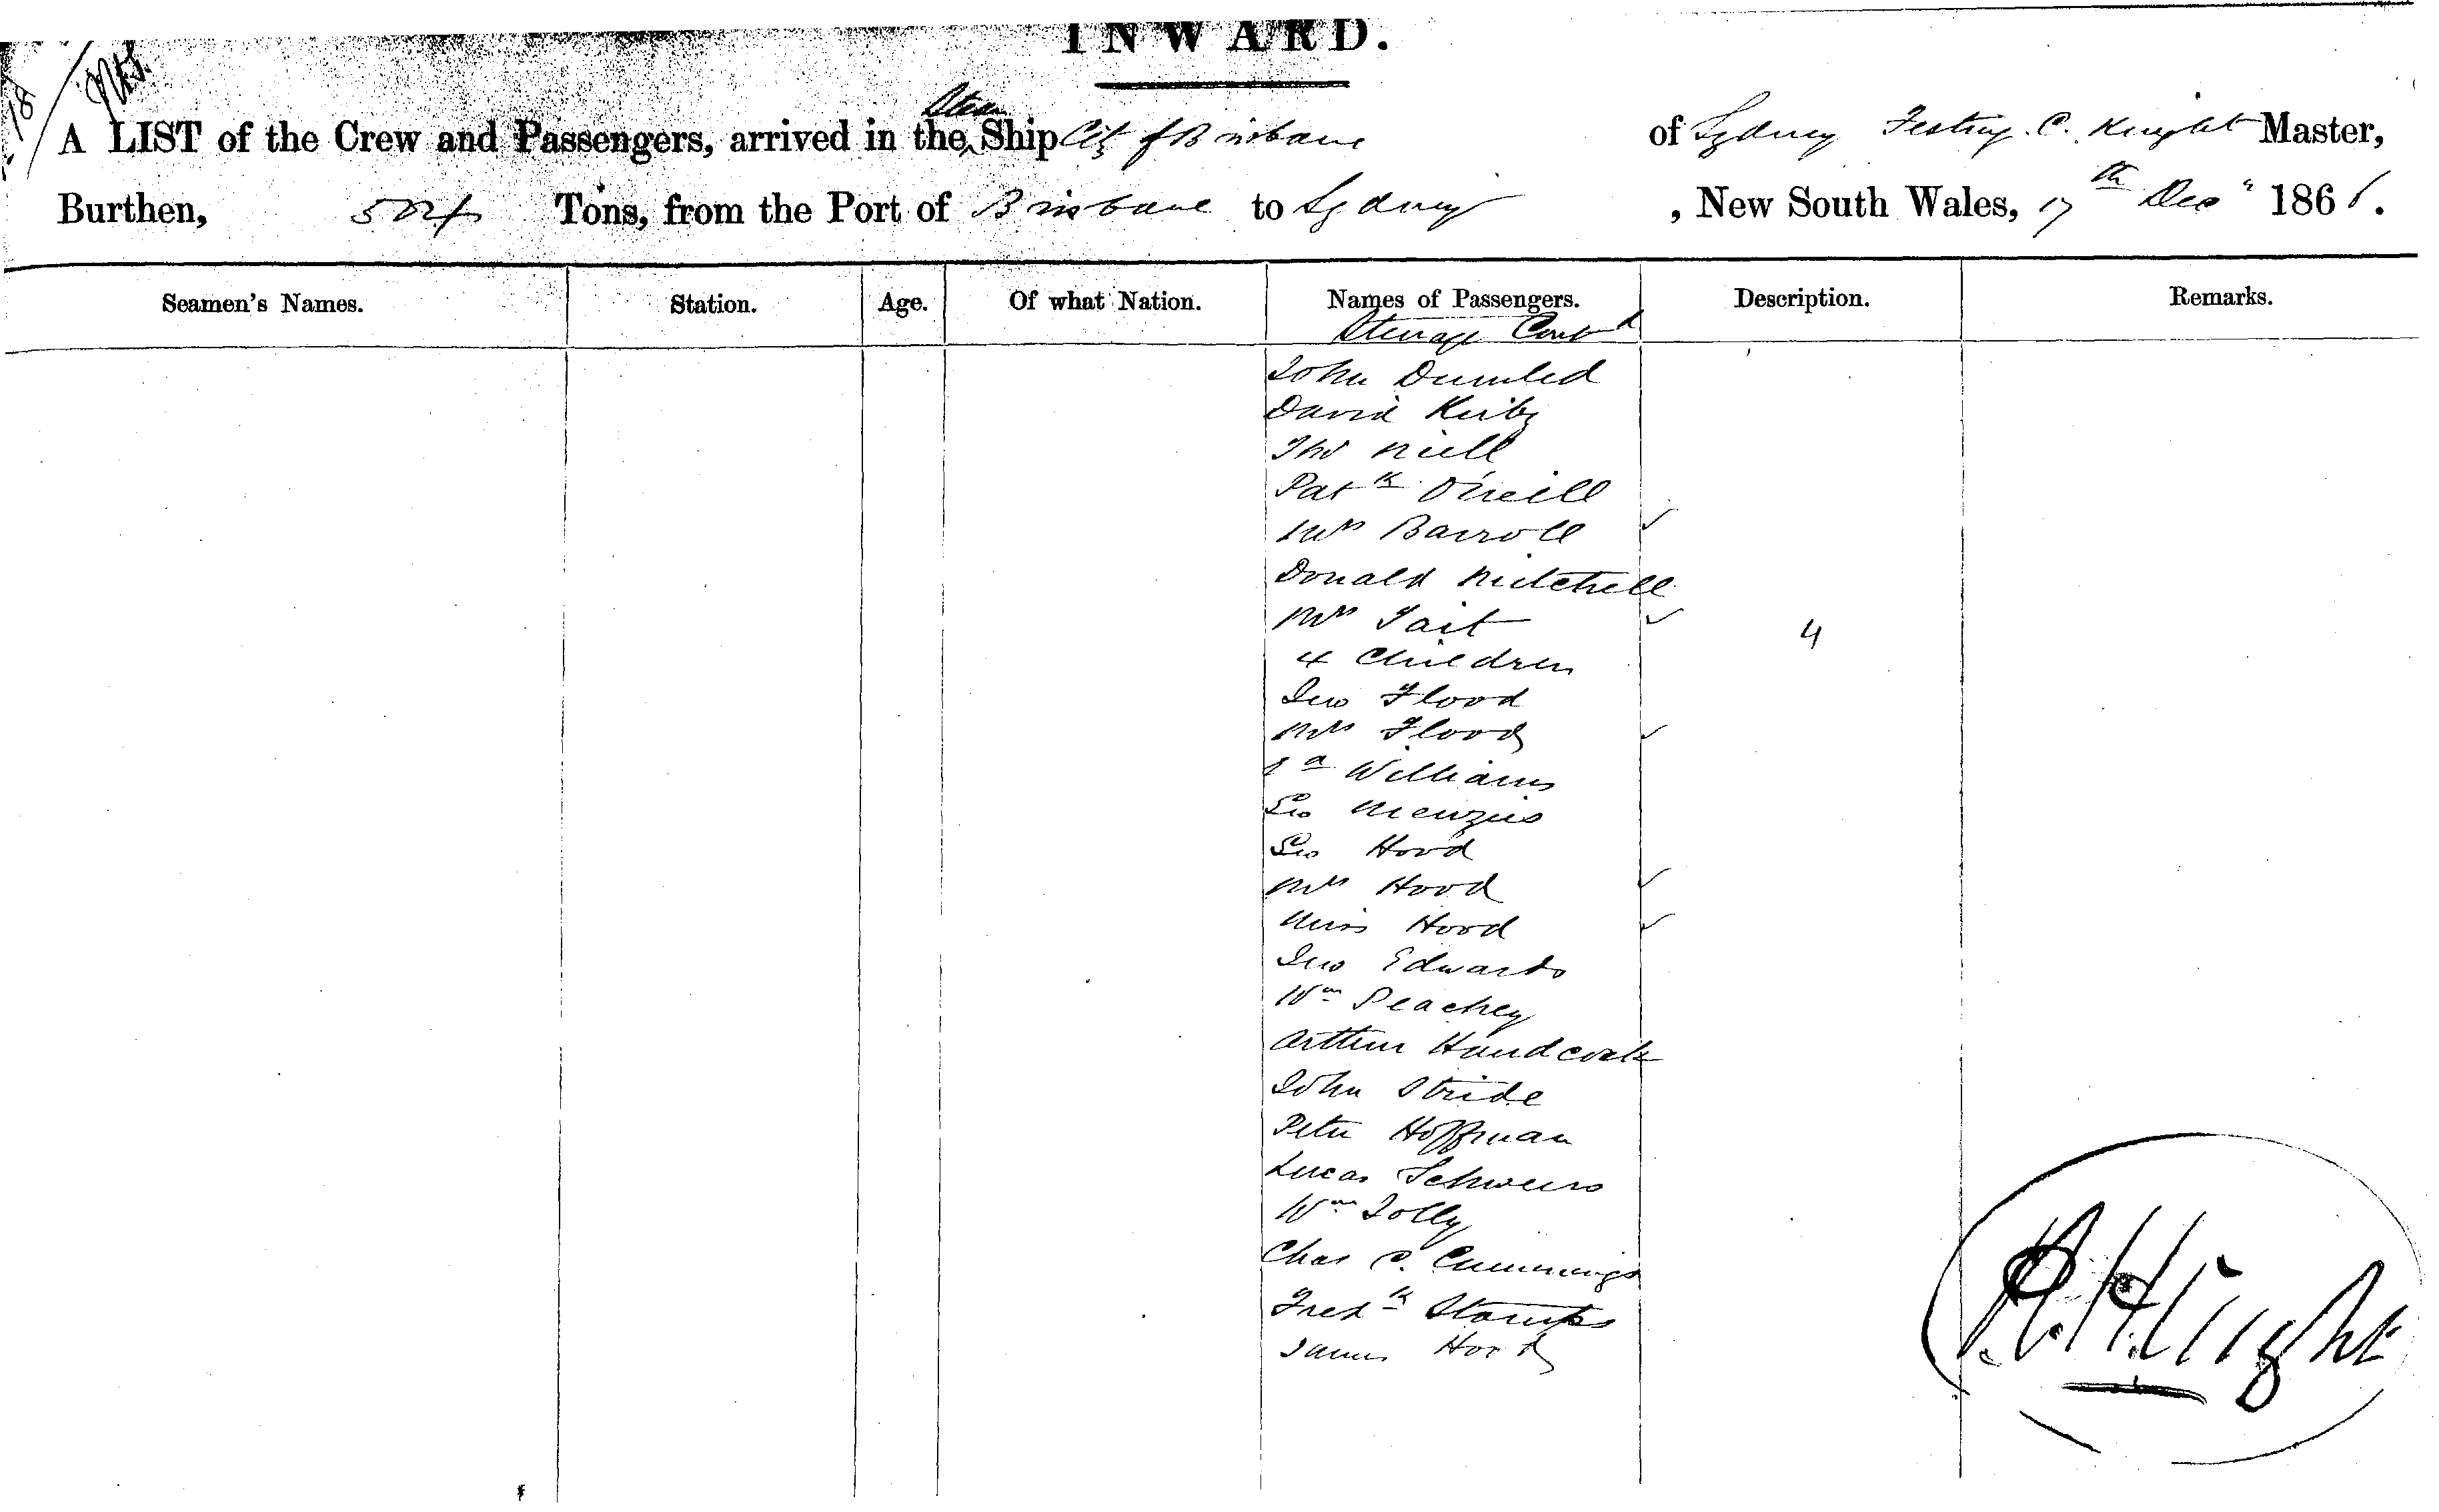 INWARD.
A LIST of the Crew and Passengers, arrived in the Steam Ship City of Brisbane of Sydney C. Knight Master,
Burthen, 504 Tons, from the Port of Brisbane to Sydney, New South Wales, 17th Dec 1866.
Seamen's Names. Station. Age. Of what Nation. Names of Passengers. Description. Remarks.
Steerage Contd
John
David Kirby
Thos Niell
Patk O'Neill
Mrs Barroll
Donald Mitchell
Mrs Tait
4 Children 4
Jno Flood
Mrs Flood
Williams
Geo Menzies
Geo Hood
Mrs Hood
Miss Hood
Jno Edwards
Wm Peachey
Arthur Handcock
John Stride
Peter Hoffman
Lucas
Wm Jolly
Chas C. Cummings
Fredk
James
Knight